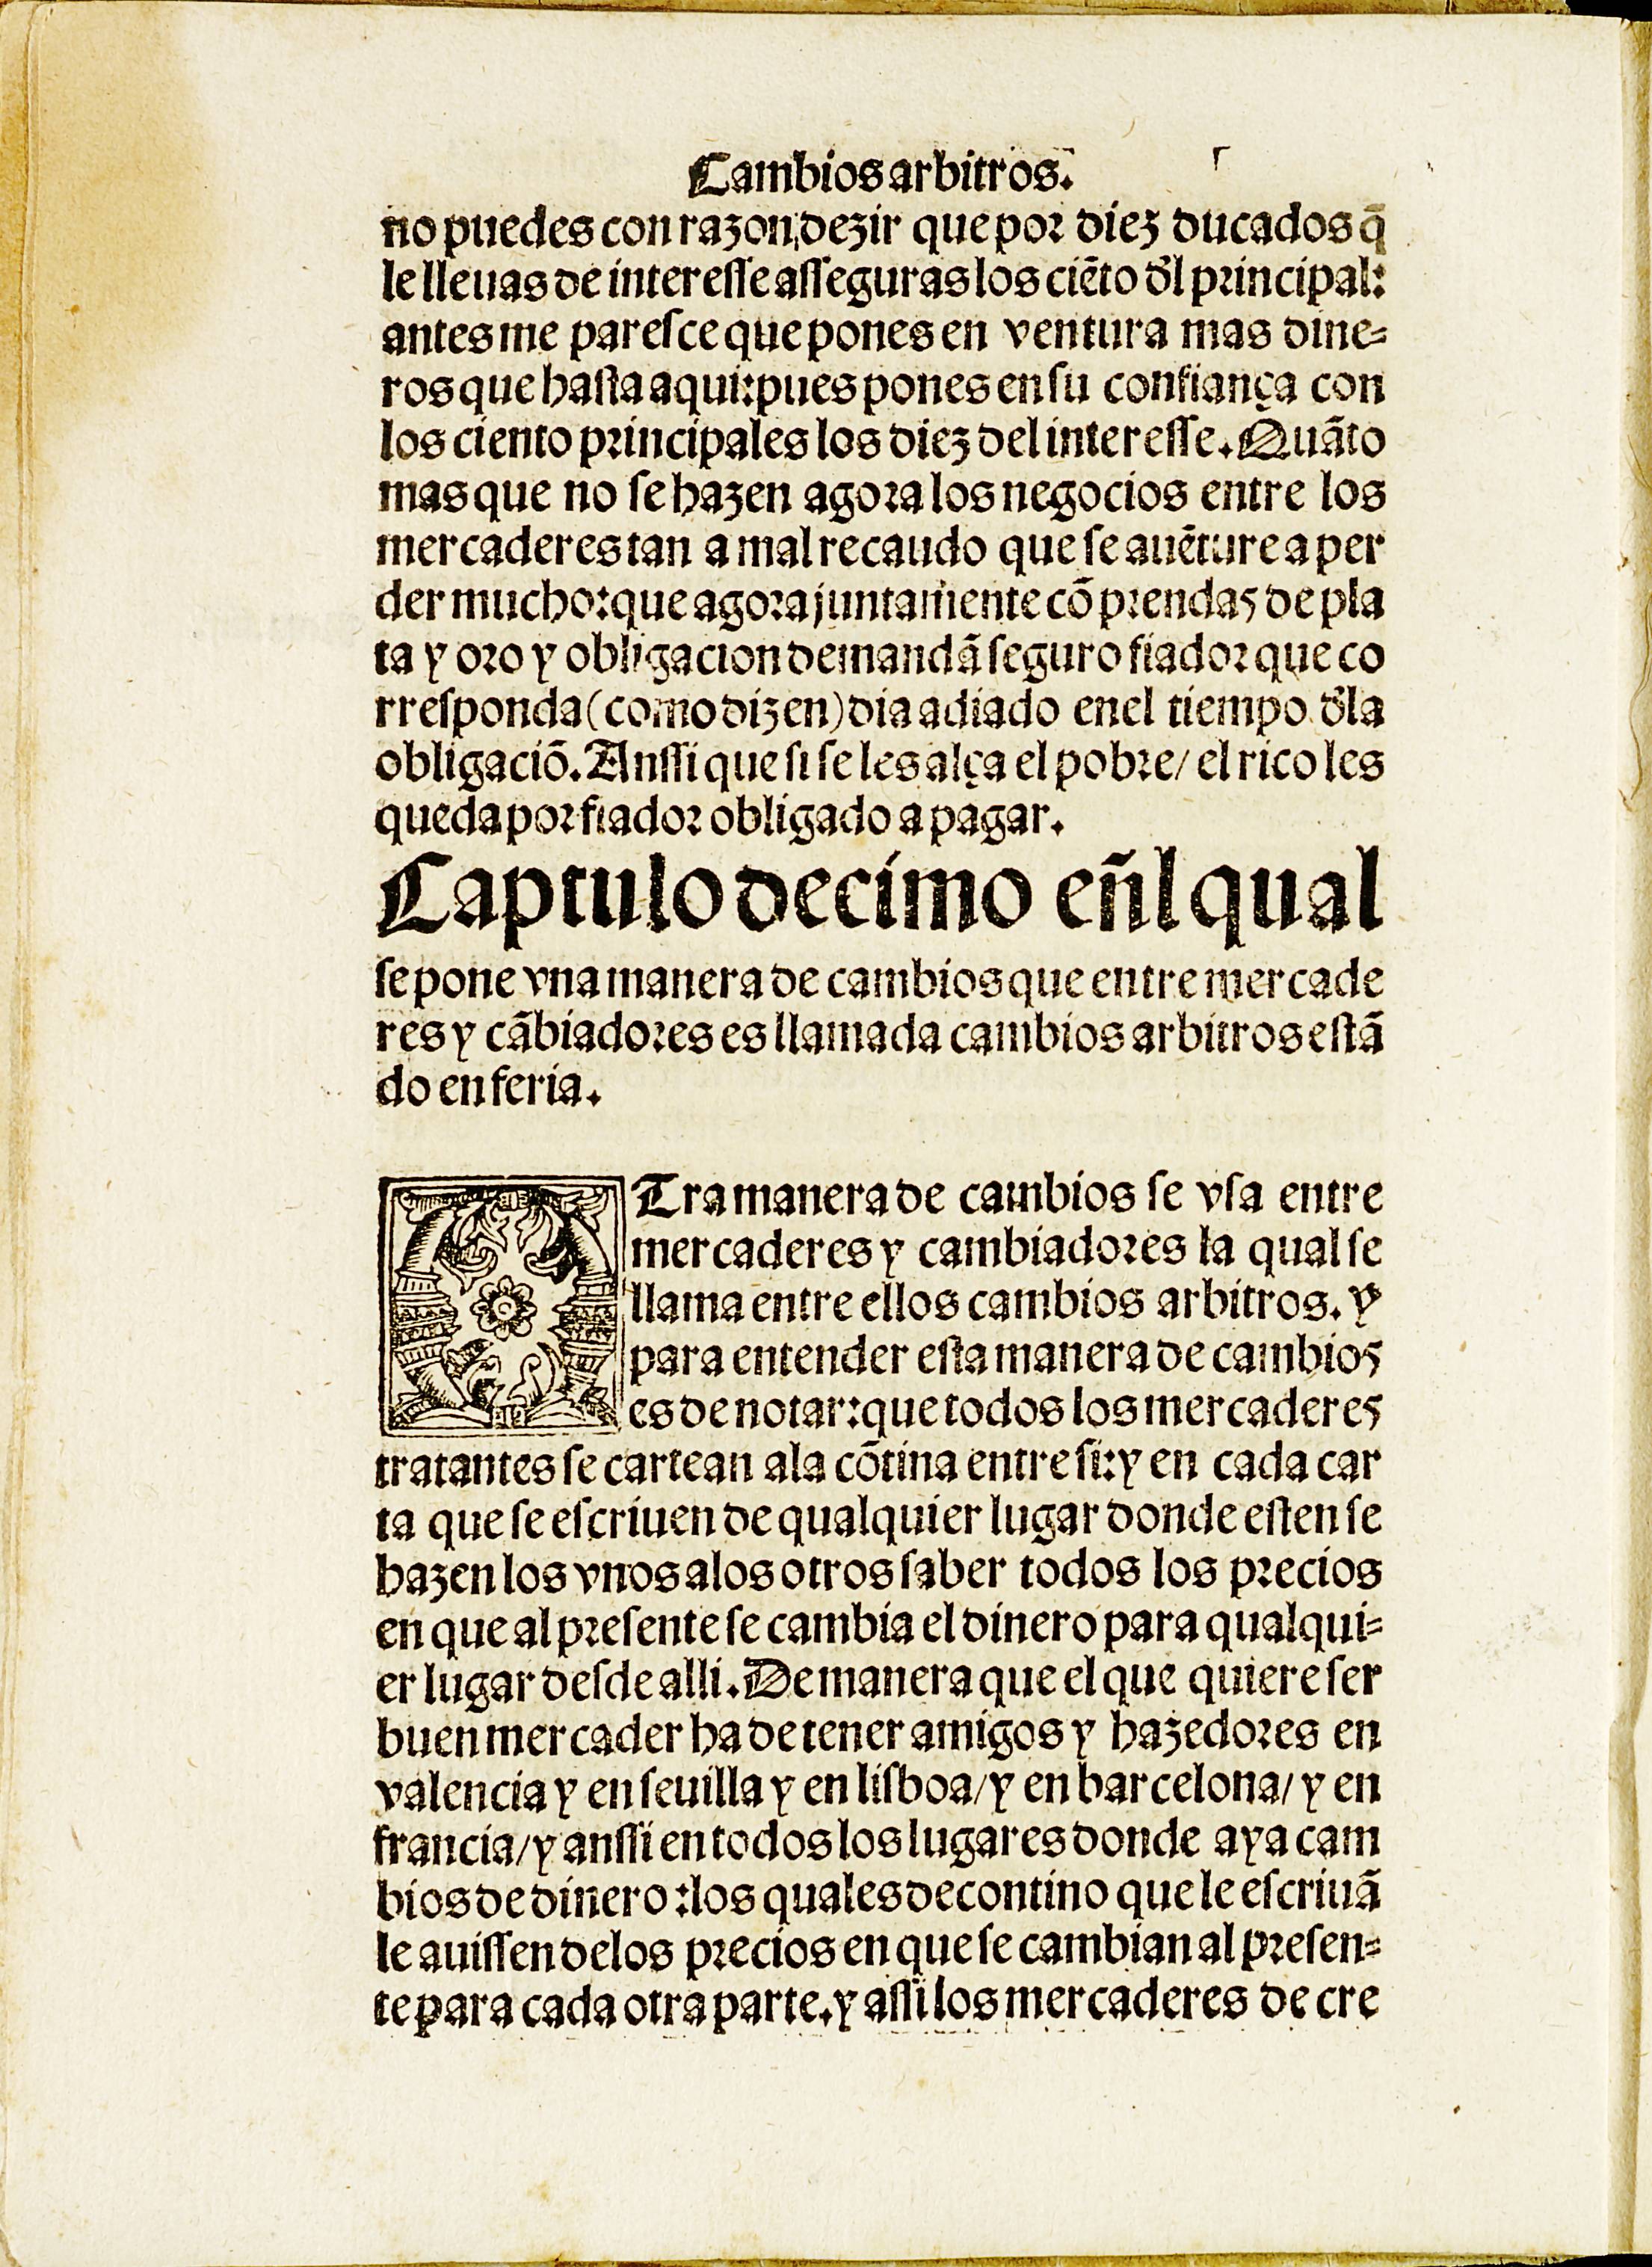 Cambios arbitros.
no puedes con razon dezir que por diez ducados q̃
le lleuas de interesse asseguras los ciẽto d̃l principal:
antes me paresce que pones en ventura mas dine-
ros que hasta aqui: pues pones en su confiança con
los ciento principales los diez del interesse. Quãto
mas que no se hazen agora los negocios entre los
mercaderes tan a mal recaudo que se auẽture a per
der mucho: que agora juntamente cõ prendas de pla
ta y oro y obligacion demandã seguro fiador que co
rresponda (como dizen) dia adiado enel tiempo d̃la
obligaciõ. Anssi que si se les alça el pobre/ el rico les
queda por fiador obligado a pagar.
Captulo decimo eñl qual
se pone vna manera de cambios que entre mercade
res y cãbiadores es llamada cambios arbitros estã
do en feria.
OTra manera de cambios se vsa entre
mercaderes y cambiadores la qual se
llama entre ellos cambios arbitros. Y
para entender esta manera de cambios
es de notar: que todos los mercaderes
tratantes se cartean ala cõtina entre si: y en cada car
ta que se escriuen de qualquier lugar donde esten se
hazen los vnos alos otros saber todos los precios
en que al presente se cambia el dinero para qualqui-
er lugar desde alli. De manera que el que quiere ser
buen mercader ha de tener amigos y hazedores en
valencia y en seuilla y en lisboa/ y en barcelona/ y en
francia/ y anssi en todos los lugares donde aya cam
bios de dinero: los quales decontino que le escriuã
le auissen delos precios en que se cambian al presen-
te para cada otra parte. y assi los mercaderes de cre